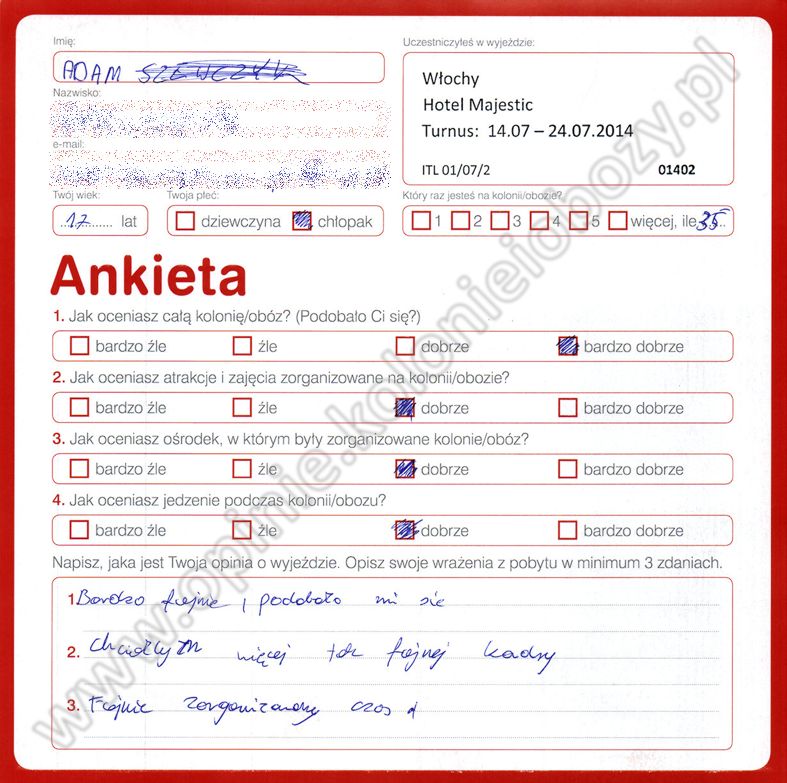 Imię:
ADAM
Nazwisko:
e-mail:
Twój wiek:
17 lat
Twoja płeć:
dziewczyna chłopak
Uczestniczyłeś w wyjeździe:
Włochy
Hotel Majestic
Turnus: 14.07 – 24.07.2014
ITL 01/07/2 01402
Który raz jesteś na kolonii/obozie?
1 2 3 4 5 więcej, ile
Ankieta
1. Jak oceniasz całą kolonię/obóz? (Podobało Ci się?)
bardzo źle źle dobrze bardzo dobrze
2. Jak oceniasz atrakcje i zajęcia zorganizowane na kolonii/obozie?
bardzo źle źle dobrze bardzo dobrze
3. Jak oceniasz ośrodek, w którym były zorganizowane kolonie/obóz?
bardzo źle źle dobrze bardzo dobrze
4. Jak oceniasz jedzenie podczas kolonii/obozu?
bardzo źle źle dobrze bardzo dobrze
Napisz, jaka jest Twoja opinia o wyjeździe. Opisz swoje wrażenia z pobytu w minimum 3 zdaniach.
1. Bardzo fajnie i podobało mi się
2. Chciałbym więcej tak fajnej kadry
3. Fajnie zorganizowany czas
www.opinie.kolonieiobozy.pl